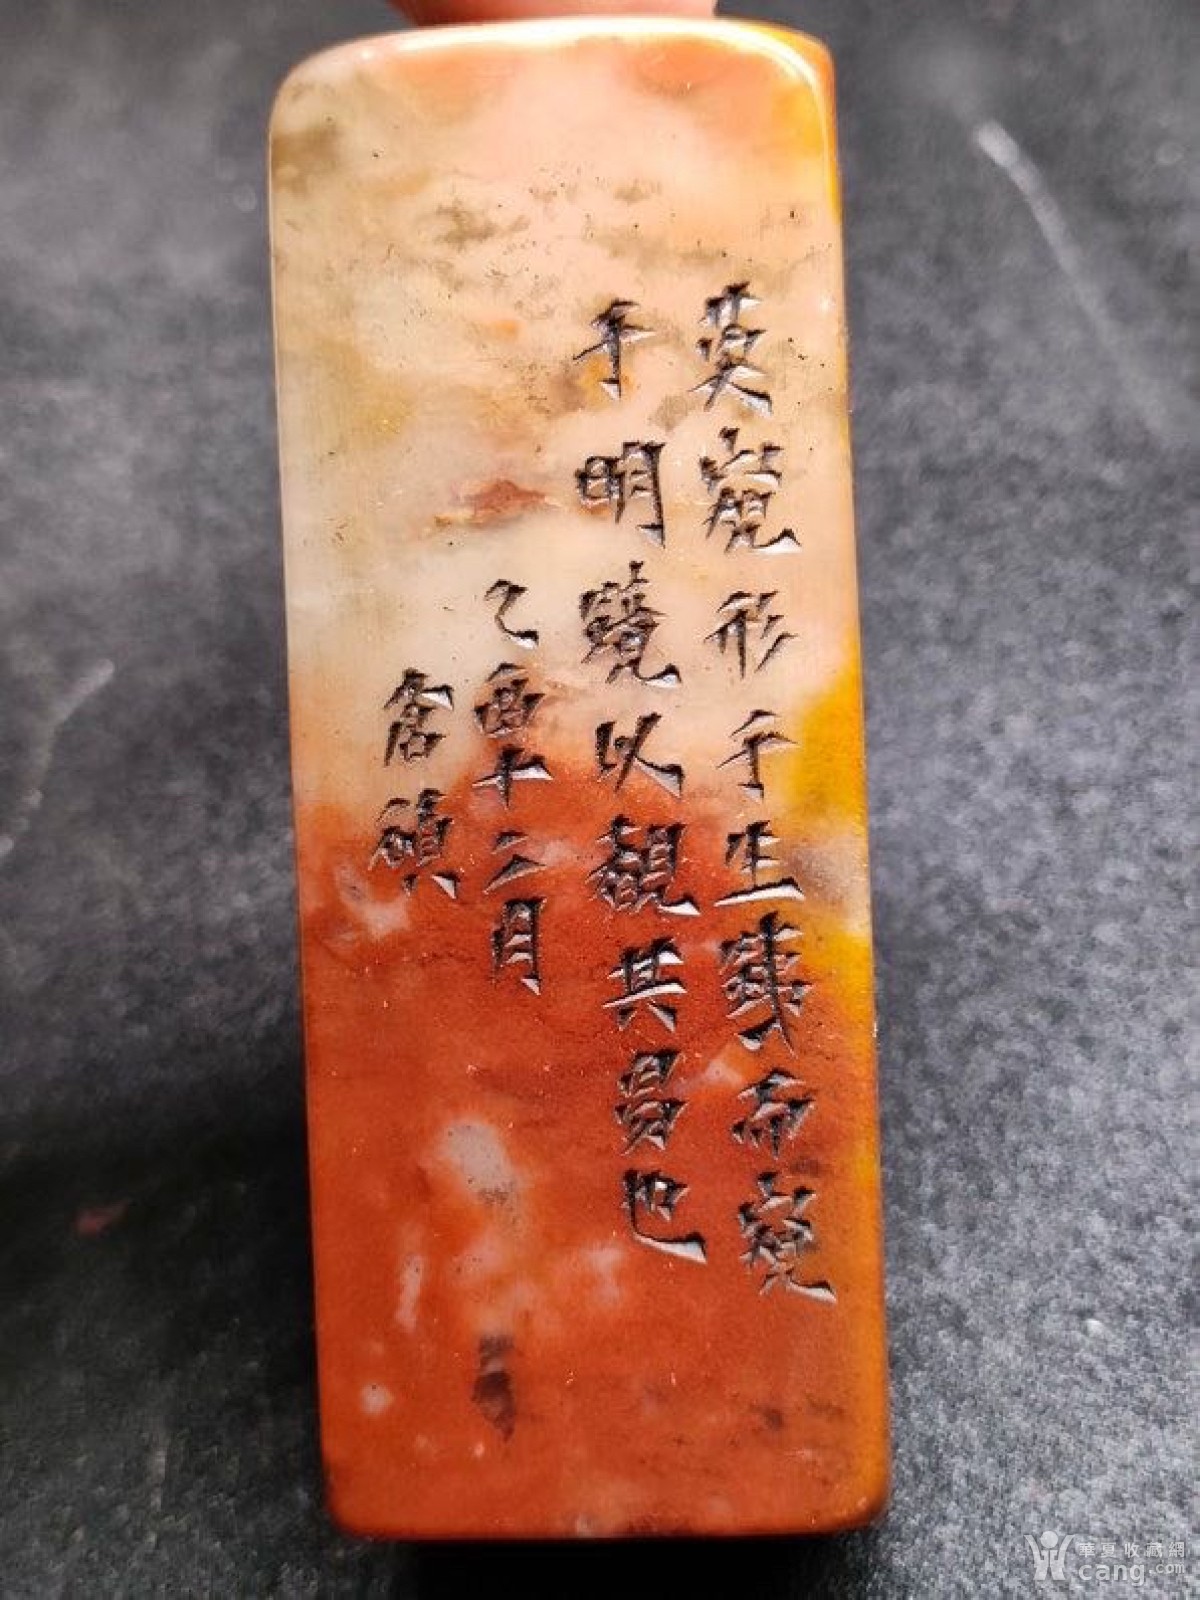 莫窺形于生鐵而窺
于明鏡以觀其易也
乙酉十二月
倉碩
華夏收藏網
cang.com